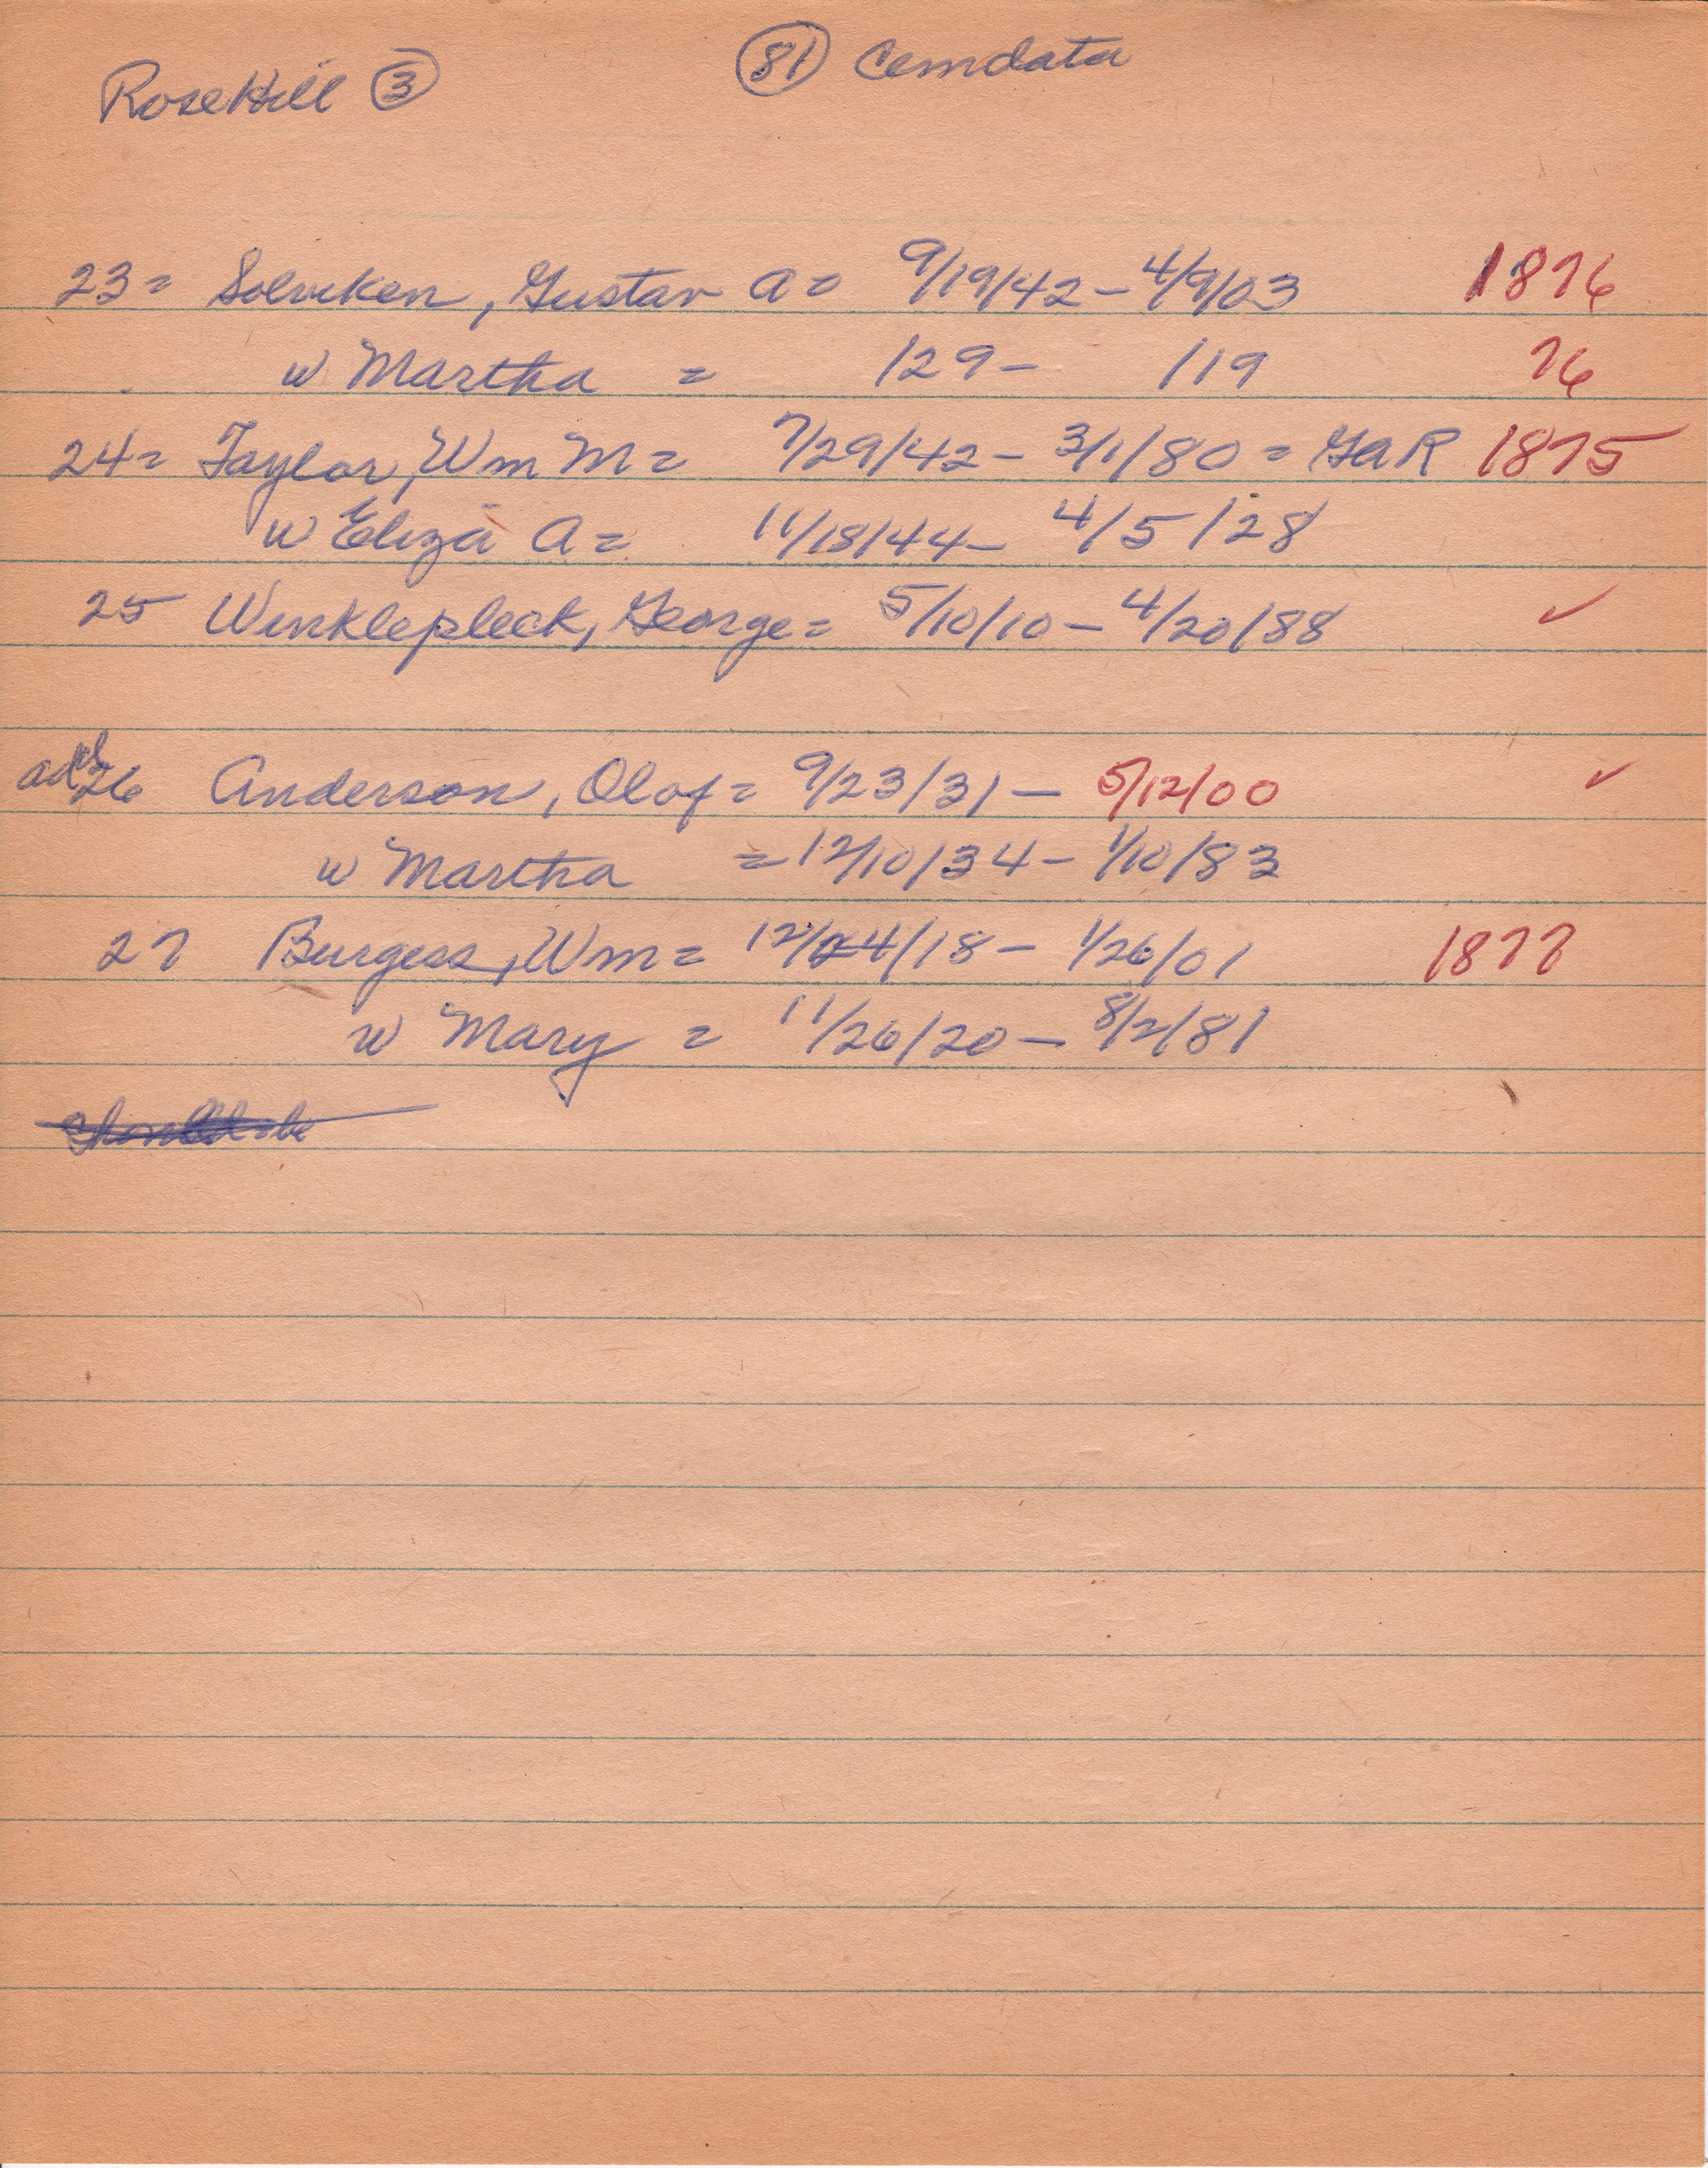 RoseHill ③ ㊁81 Cemdata
23= Solviken, Gustav A= 9/19/42 - 4/9/03 1876
w Martha = /29 - /19 76
24= Taylor, Wm M= 7/29/42 - 3/1/80 = GAR 1875
w Eliza A= 11/18/44 - 4/5/28
25 Winklepleck, George= 5/10/10 - 4/20/88 ✓
add 26 Anderson, Olof= 9/23/31 - 5/12/00 ✓
w Martha = 12/10/34 - 1/10/83
27 Burgess, Wm= 12/24/18 - 1/26/01 1877
w Mary = 11/26/20 - 8/2/81